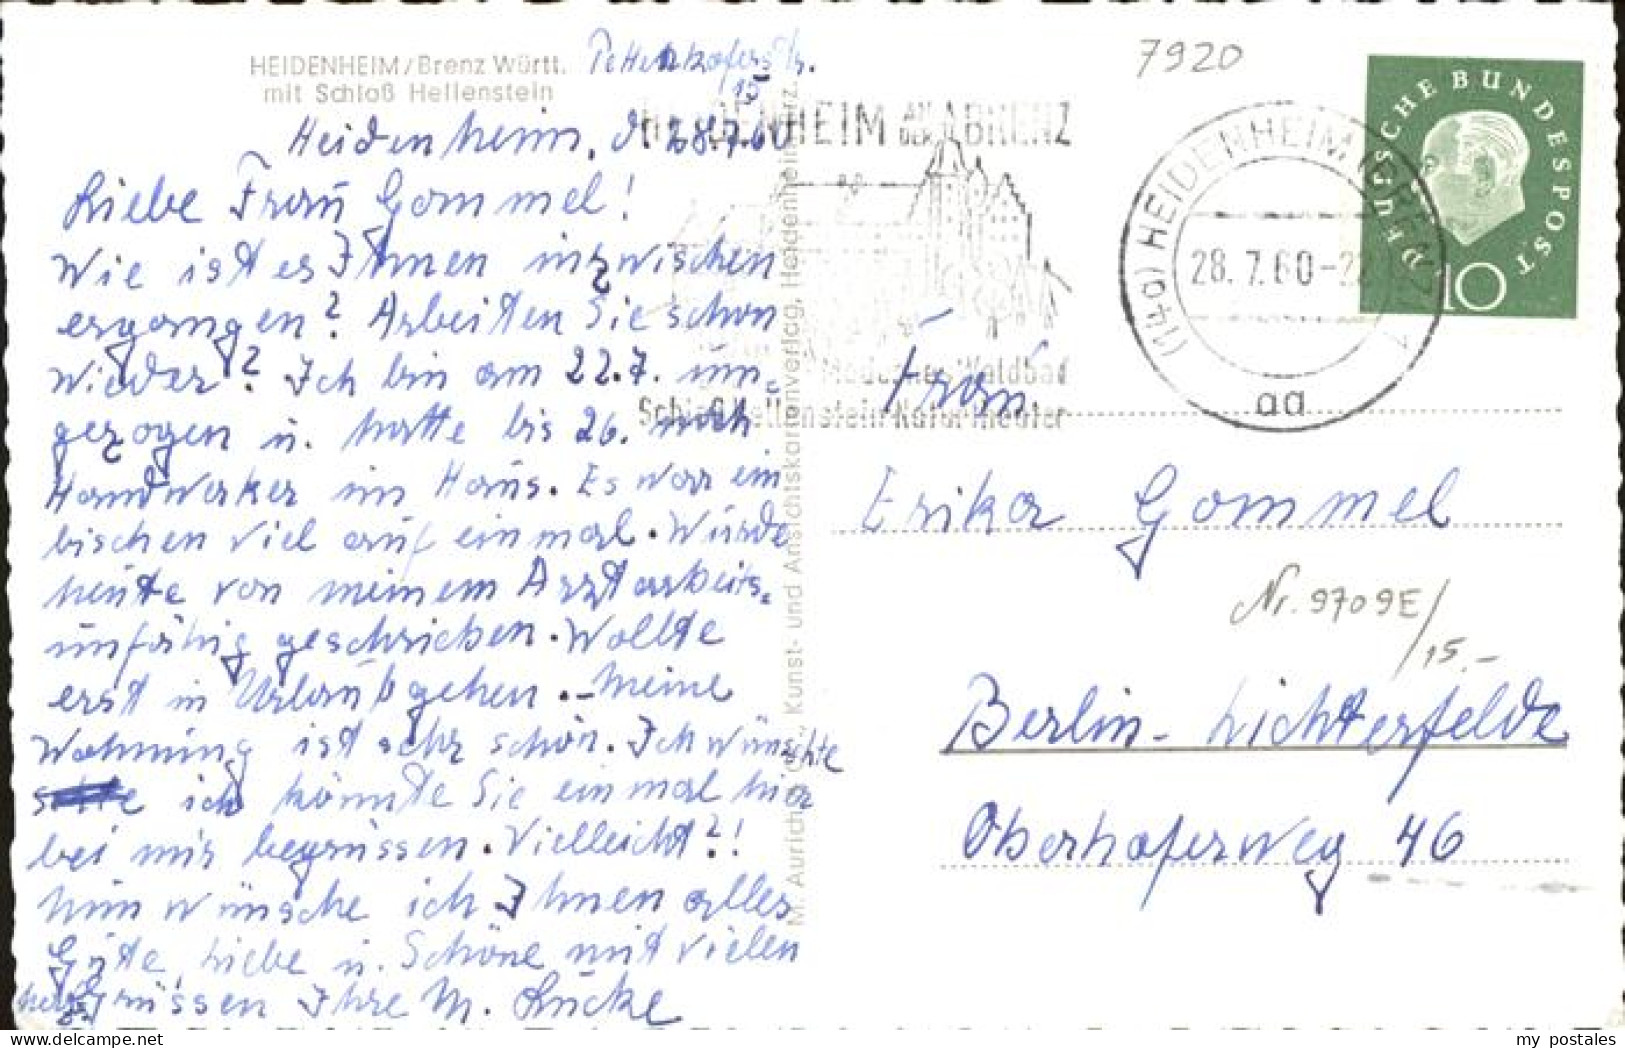 HEIDENHEIM/Brenz Württ.
mit Schloß Hellenstein
Pettenkoferstr.
15
Heidenheim, d 28.7.60
Liebe Frau Gommel!
Wie ist es Ihnen inzwischen
ergangen? Arbeiten Sie schon
wieder? Ich bin am 22.7. um=
gezogen u. hatte bis 26. noch
Handwerker im Haus. Es war ein
bischen viel auf einmal. Würde
heute von meinem Arzt arbeits=
unfähig geschrieben. Wollte
erst in Urlaub gehen. – Meine
Wohnung ist sehr schön. Ich wünschte
ich könnte Sie einmal hier
bei mir begrüssen. Vielleicht?!
Nun wünsche ich Ihnen alles
Gute, Liebe u. Schöne mit vielen
herzl. Grüssen Ihre M. Lücke
M. Aurich, Kunst- und Ansichtskartenverlag, Heidenheim/Brz.
HEIDENHEIM AN DER BRENZ
Modernes Waldbad
Schloß Hellenstein-Naturtheater
7920
(14a) HEIDENHEIM (BRENZ) 1
28.7.60-2
aa
DEUTSCHE BUNDESPOST
10
Frau
Erika Gommel
Nr. 9709E/
15.–
Berlin-Lichterfelde
Oberhoferweg 46
my postales